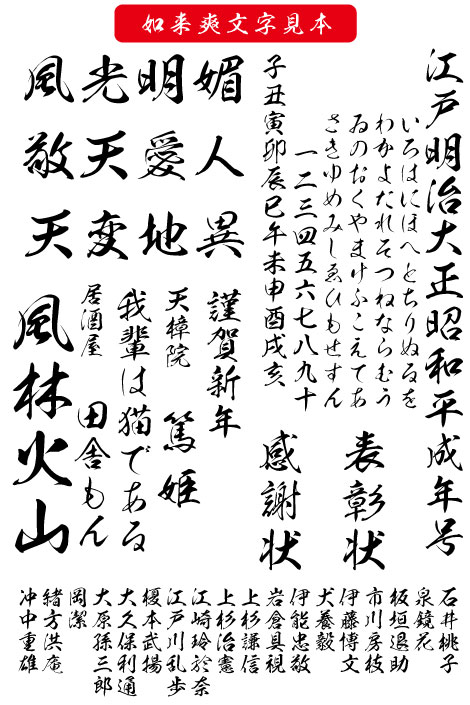 如来爽文字見本
江戸明治大正昭和平成年号
いろはにほへとちりぬるを
わかよたれそつねならむう
ゐのおくやまけふこえてあ
さきゆめみしゑひもせすん
一二三四五六七八九十
子丑寅卯辰巳午未申酉戌亥
表彰状
感謝状
風光明媚
敬天愛人
天変地異
謹賀新年
天樟院 篤姫
我輩は猫である
居酒屋 田舎もん
風林火山
石井桃子
泉鏡花
板垣退助
市川房枝
伊藤博文
犬養毅
伊能忠敬
岩倉具視
上杉謙信
上杉治憲
江崎玲於奈
江戸川乱歩
榎本武揚
大久保利通
大原孫三郎
岡潔
緒方洪庵
冲中重雄